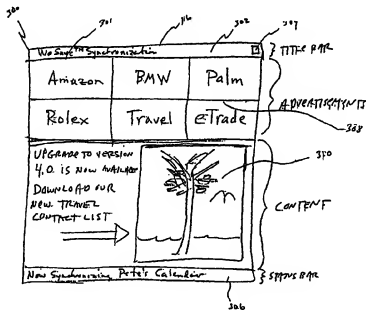 300 301 116 302 304
WeSync™ Synchronization TITLE BAR
Amazon BMW Palm
ADVERTISEMENTS
Rolex Travel eTrade
308
UPGRADE TO VERSION
4.0 IS NOW AVAILABLE
310
DOWNLOAD OUR
NEW TRAVEL
CONTACT LIST
CONTENT
Now Synchronizing Pete's Calendar STATUS BAR
306